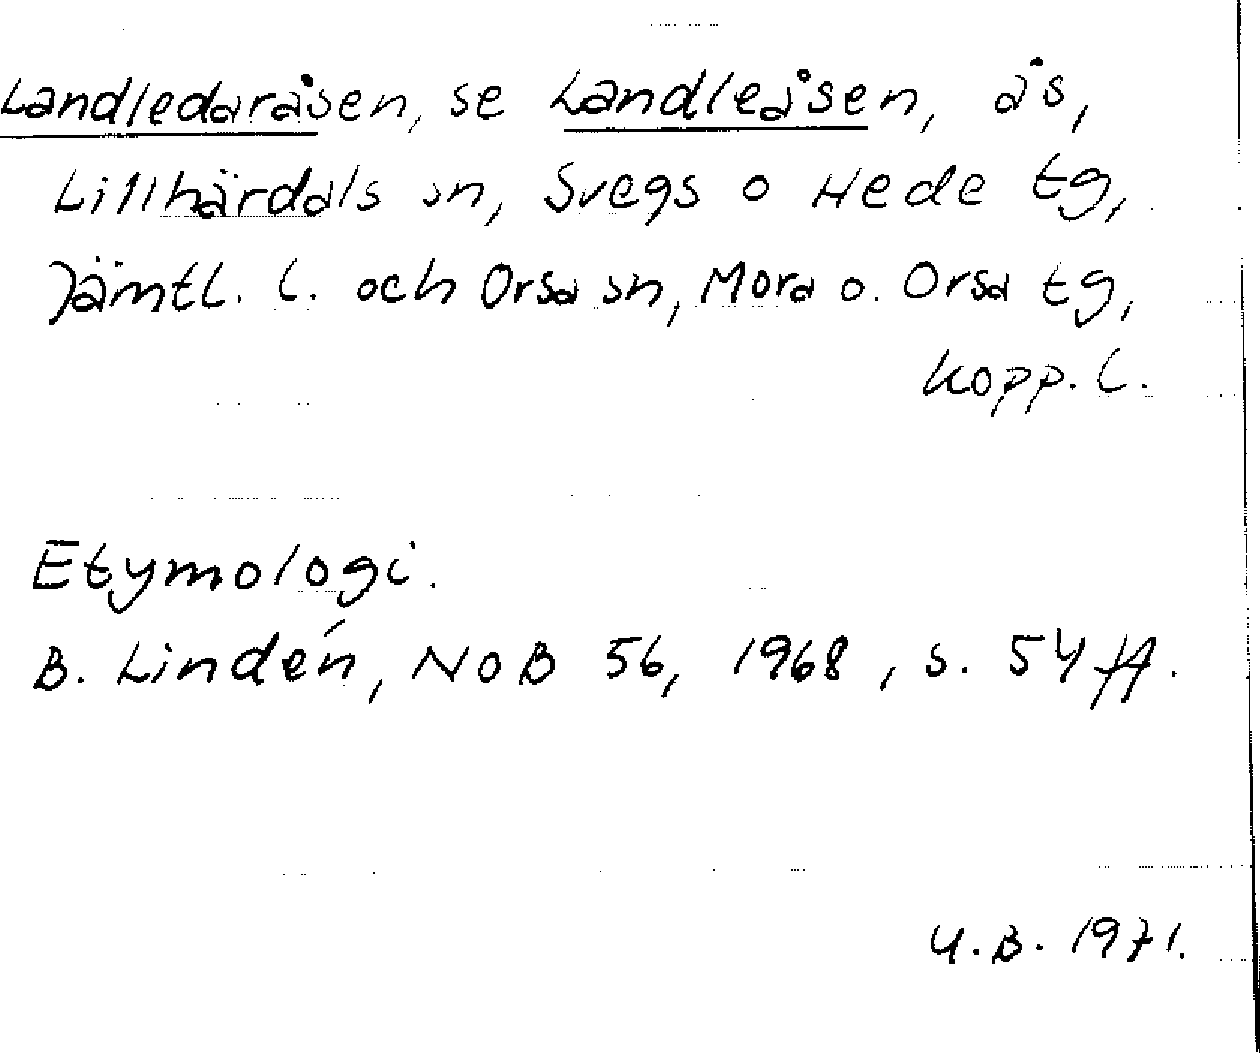 Landledaråsen, se Landleåsen, ås,
Lillhärdals sn, Svegs o Hede tg,
Jämtl. l. och Orsa sn, Mora o. Orsa tg,
Kopp. l.
Etymologi.
B. Lindén, NoB 56, 1968, s. 54 ff.
U.B. 1971.